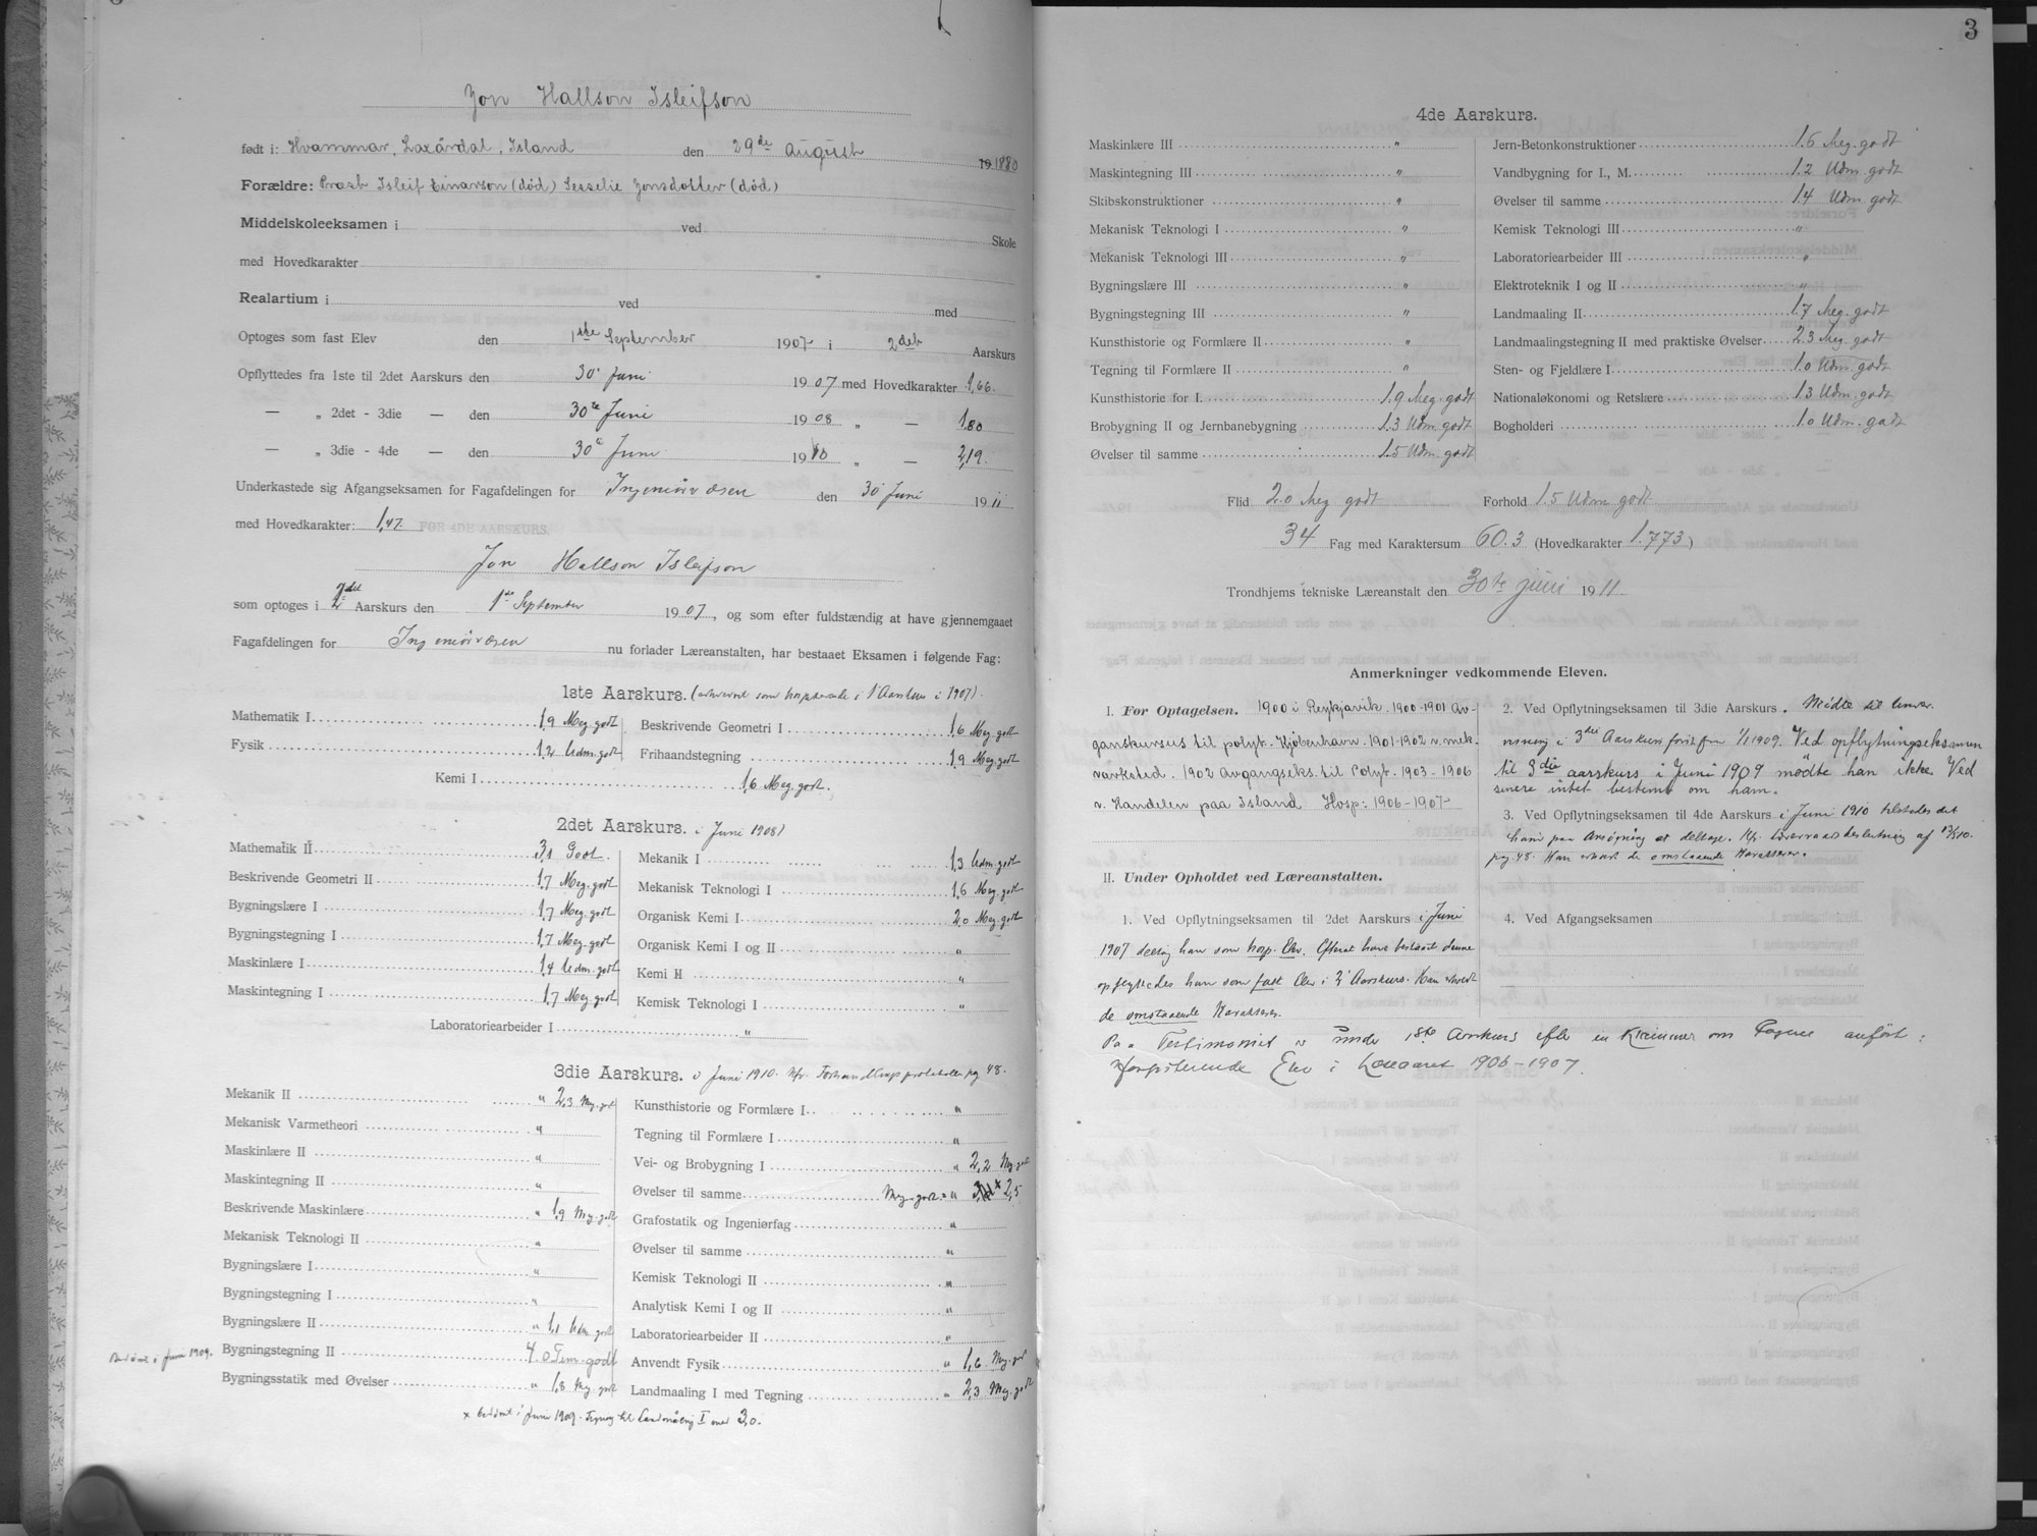 3
Jon Hallson Isleifson
født i: Hvammar, Laxárdal, Island den 29de August 1880
Forældre: Præst Isleif Einarson (död) Sesselie Jonsdotter (död)
Middelskoleeksamen i ved Skole
med Hovedkarakter
Realartium i ved med
Optoges som fast Elev den 1ste September 1907 i 2det Aarskurs
Opflyttedes fra 1ste til 2det Aarskurs den 30' Juni 1907 med Hovedkarakter 1,66.
— „ 2det - 3die — den 30te Juni 1908 „ — 1,80
— „ 3die - 4de — den 30e Juni 1910 „ — 2,19.
Underkastede sig Afgangseksamen for Fagafdelingen for Ingeniörvæsen den 30 Juni 1911
med Hovedkarakter: 1,47 FOR 4DE AARSKURS.
Jon Hallson Isleifson
som optoges i 2det Aarskurs den 1ste September 1907, og som efter fuldstændig at have gjennemgaaet
Fagafdelingen for Ingeniörvæsen nu forlader Læreanstalten, har bestaaet Eksamen i følgende Fag:
1ste Aarskurs. (erhvervet som hospiterende i 1' Aarskurs i 1907).
Mathematik I 1,9 Meg. godt
Fysik 1,2 Udm. godt
Beskrivende Geometri I 1,6 Meg. godt
Frihaandstegning 1,9 Meg. godt
Kemi I 1,6 Meg. godt.
2det Aarskurs. i Juni 1908)
Mathematik II 3,1 Godt.
Beskrivende Geometri II 1,7 Meg. godt
Bygningslære I 1,7 Meg. godt
Bygningstegning I 1,7 Meg. godt
Maskinlære I 1,4 Udm. godt
Maskintegning I 1,7 Meg. godt
Mekanik I 1,3 Udm. godt
Mekanisk Teknologi I 1,6 Meg. godt
Organisk Kemi I 2,0 Meg. godt
Organisk Kemi I og II "
Kemi II "
Kemisk Teknologi I "
Laboratoriearbeider I "
3die Aarskurs. i Juni 1910. Kfr. Forhandlingsprotokollen pg 48.
Mekanik II " 2,3 Mg. godt
Mekanisk Varmetheori "
Maskinlære II "
Maskintegning II "
Beskrivende Maskinlære " 1,9 Mg. godt
Mekanisk Teknologi II "
Bygningslære I "
Bygningstegning I "
Bygningslære II " 1,1 Udm. godt
Bedömt i Juni 1909. Bygningstegning II 4.0 Tem. godt
Bygningsstatik med Øvelser " 1,8 Mg. godt
Kunsthistorie og Formlære I "
Tegning til Formlære I "
Vei- og Brobygning I " 2,2 Mg. godt
Øvelser til samme Meg. godt " 2,5
Grafostatik og Ingeniørfag "
Øvelser til samme "
Kemisk Teknologi II "
Analytisk Kemi I og II "
Laboratoriearbeider II "
Anvendt Fysik " 1,6 Mg. godt
Landmaaling I med Tegning " 2,3 Meg. godt
x bedömt i Juni 1909. Tegning til Landmåling I med 3,0.
4de Aarskurs.
Maskinlære III "
Maskintegning III "
Skibskonstruktioner "
Mekanisk Teknologi I "
Mekanisk Teknologi III "
Bygningslære III "
Bygningstegning III "
Kunsthistorie og Formlære II "
Tegning til Formlære II "
Kunsthistorie for I. 1.9 Meg. godt
Brobygning II og Jernbanebygning 1.3 Udm. godt
Øvelser til samme 1.5 Udm. godt
Jern-Betonkonstruktioner 1.6 Meg. godt
Vandbygning for I., M. 1.2 Udm. godt
Øvelser til samme 1.4 Udm. godt
Kemisk Teknologi III "
Laboratoriearbeider III "
Elektroteknik I og II "
Landmaaling II 1.7 Meg. godt
Landmaalingstegning II med praktiske Øvelser 2.3 Meg. godt
Sten- og Fjeldlære I 1.0 Udm. godt
Nationaløkonomi og Retslære 1.3 Udm. godt
Bogholderi 1.0 Udm. godt
Flid 2.0 Meg godt Forhold 1.5 Udm. godt
34 Fag med Karaktersum 60.3 (Hovedkarakter 1.773)
Trondhjems tekniske Læreanstalt den 30te juni 1911.
Anmerkninger vedkommende Eleven.
I. Før Optagelsen. 1900 i Reykjavik. 1900-1901 Av-
ganskursus til polyt. Kjöbenhavn. 1901-1902 v. mek.
værksted. 1902 Avgangseks. til Polyt. 1903-1906
v. Handelen paa Island Hosp: 1906-1907
II. Under Opholdet ved Læreanstalten.
1. Ved Opflytningseksamen til 2det Aarskurs i Juni
1907 deltog han som hosp. Elev. Efterat have bestaaet denne
opflyttedes han som fast Elev i 2' Aarskurs. Han erholdt
de omstaaende Karakterer.
2. Ved Opflytningseksamen til 3die Aarskurs. Mödte til
i 3die Aarskurs 1/1 1909. Ved opflytningseksamen
til 3die aarskurs i Juni 1909 mödte han ikke. Ved
senere intet bestemt om ham.
3. Ved Opflytningseksamen til 4de Aarskurs i Juni 1910 tilstedes det
ham paa Ansögning at deltage. Kfr. Lærerraadsbeslutning af
pag 48. Han erholdt de omstaaende Karakterer.
4. Ved Afgangseksamen
Paa Testimoniet er under 1ste Aarskurs efter en Klammer om Fagene anfört:
Hospiterende Elev i Læreaaret 1906-1907.